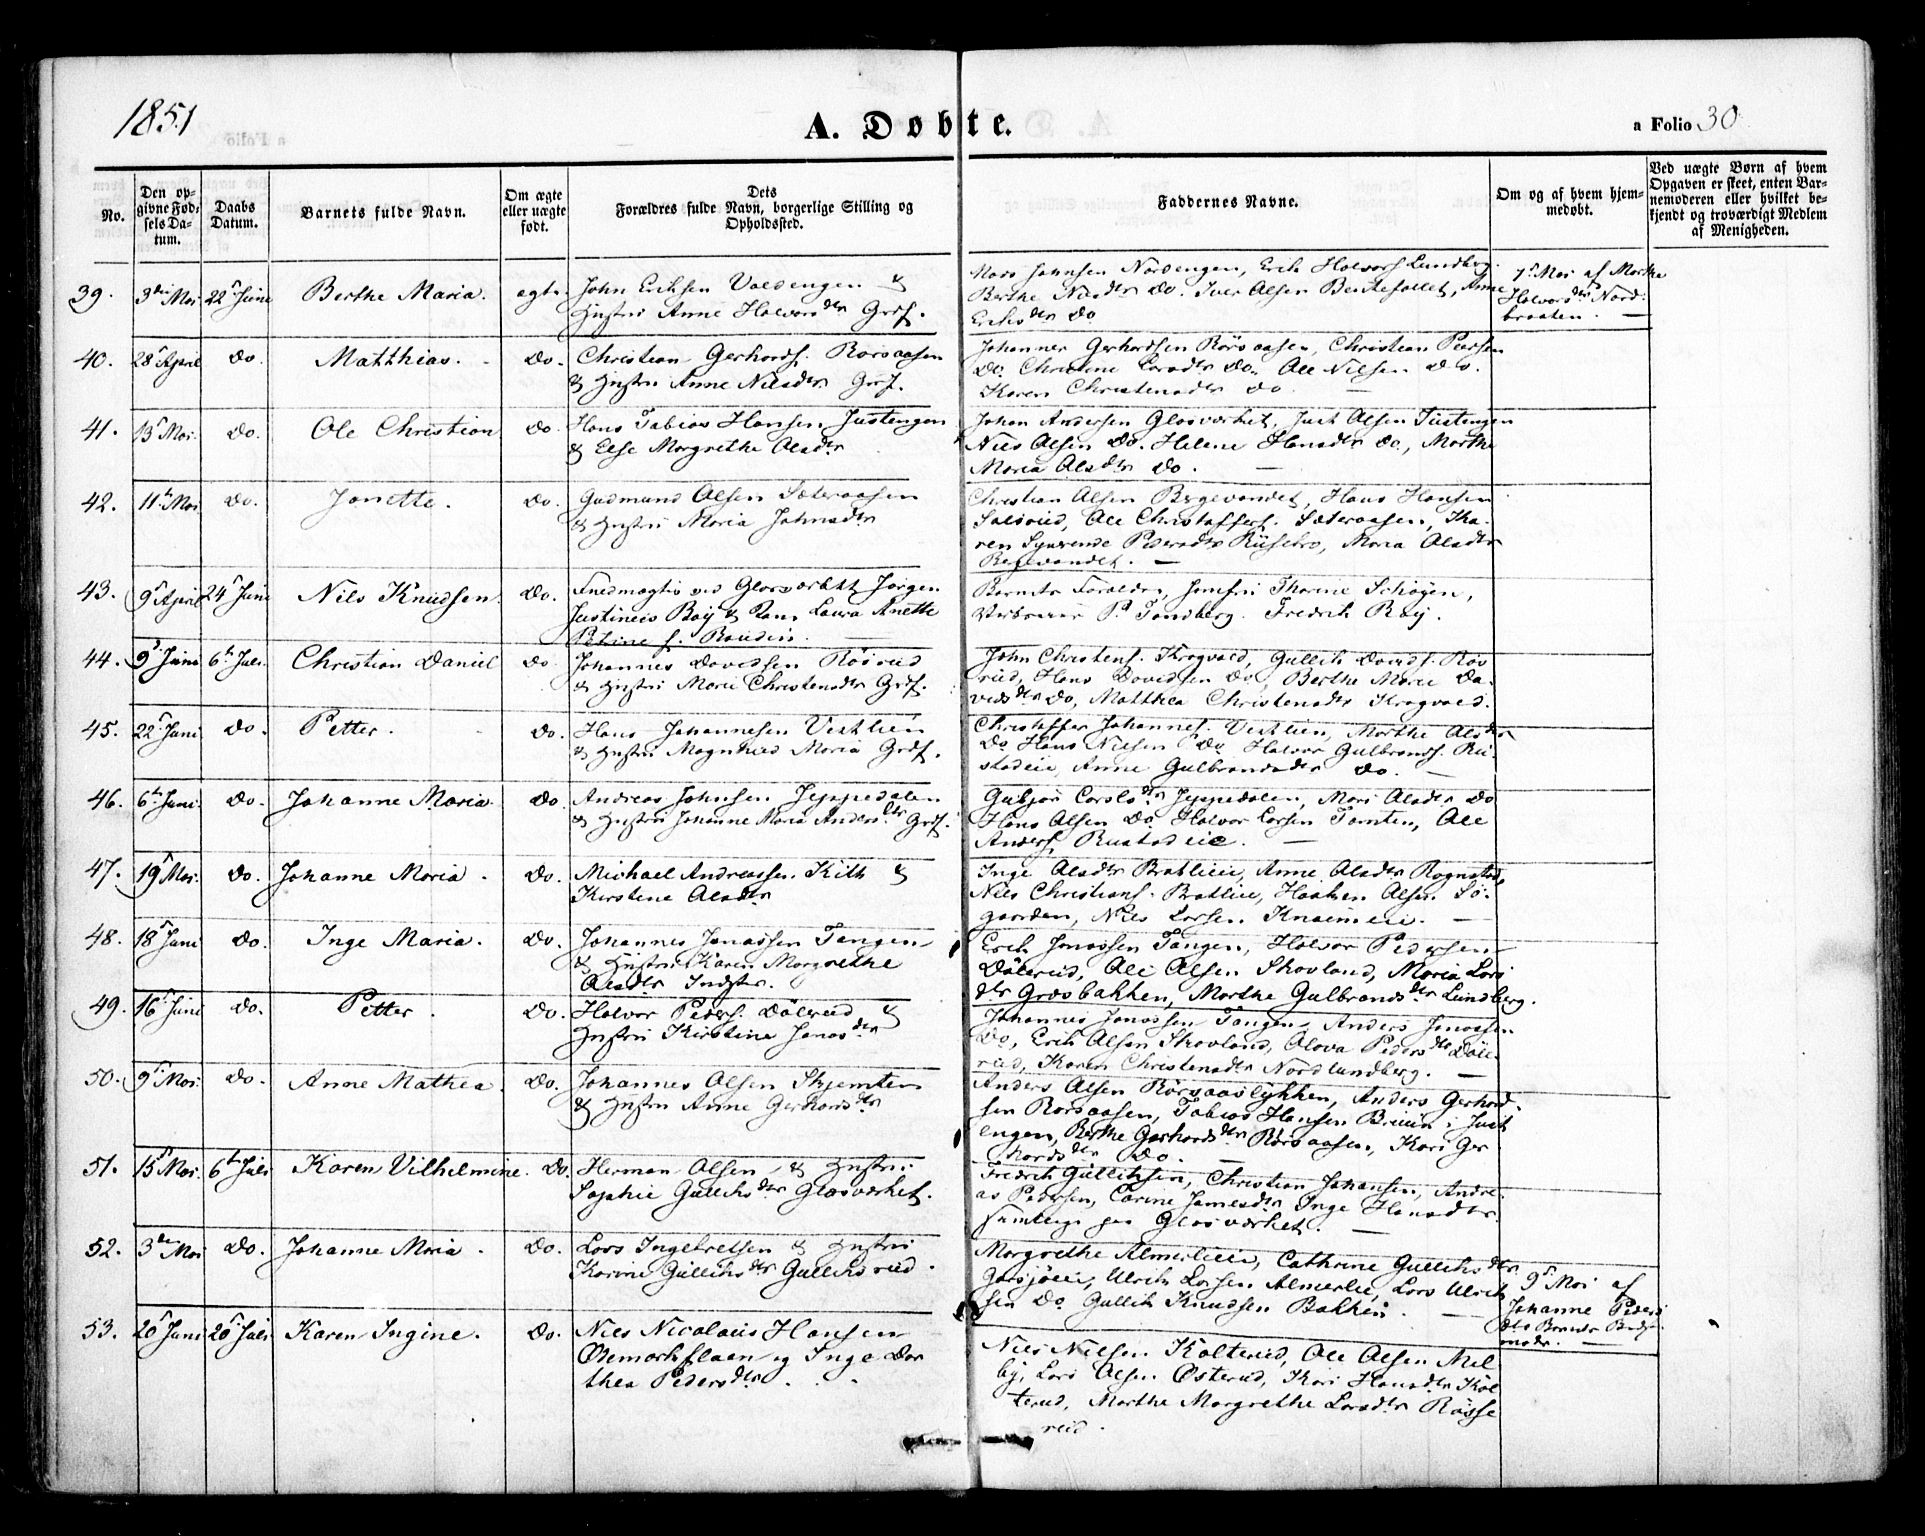 1851
A. Døbte.
a Folio 30
No.
Den op-
givne Fød-
sels Da-
tum.
Daabs
Datum.
Barnets fulde Navn.
Om ægte
eller uægte
født.
Dets
Forældres fulde Navn, borgerlige Stilling og
Opholdssted.
Faddernes Navne.
Om og af hvem hjem-
medøbt.
Ved uægte Børn af hvem
Opgaven er skeet, enten Bar-
nemoderen eller hvilket be-
kjendt og troværdigt Medlem
af Menigheden.
39. 3die Mai 22d Juni Berthe Maria. ægte. John Eriksen Valdengen &
Hustru Anne Halvorsdtr Grdf.
Johnsen Nordengen, Erik Halvors Lundberg.
Berthe Nilsdtr Do. Iver Olsen, Anne
Eriksdtr Do
7d Mai af Marthe
Halvorsdtr Nord-
braaten. —
40. 28d April Do. Matthias. Do. Christian Gerhards. Rørsaasen
& Hustru Anne Nilsdtr Grdf.
Johannes Gerhardsen Rørsaasen, Christian
Do. Christine Larsdtr Do. Ole Nilsen Do.
Karen Christensdtr Do. —
41. 13d Mai. Do. Ole Christian Do. Hans Tobias Hansen Justengen
& Else Margrethe Olsdtr
Johan Andersen Glasværket, Just Olsen Justengen
Nils Olsen Do. Helene Hansdtr Do, Marthe
Maria Olsdtr Do. —
42. 11te Mai Do. Janette. Do. Gudmund Olsen Sæteraasen
& Hustru Maria Johnsdtr
Christian Olsen, Hans Hansen
Ole Christoffers. Sæteraasen, Ka-
ren Pedersdtr, Maria Olsdtr
43. 9d April 24d Juni Nils Knudsen. Do. Fuldmægtig ved Glasværket Jørgen
Justineus Bay & Laura Anette
Petine f.
Barnets Forældre, Jomfru Thorine Schøyen,
P. Tandberg. Fredrik Bay.
44. 9d Juni 6te Juli. Christian Daniel Do. Johannes Davidsen Røsrud
& Hustru Marie Christensdtr Grdf.
John Christens. Kragvold, Gullik Davids. Røs
rud, Hans Davidsen Do, Berthe Marie Da-
vidsdtr Do, Matthea Christensdtr Kragvold.
45. 22d Juni Do. Petter. Do. Hans Johannesen Vestlien
& Hustru Magnhild Maria Grdf.
Christoffer Johannes. Vestlien, Marthe Olsdtr
Do Hans Nielsen Do Halvor Gulbrands. Ru-
stadeie, Anne Gulbrandsdtr Do. —
46. 6te Juni. Do. Johanne Maria. Do. Andreas Johnsen Jeppedalen
& Hustru Johanne Maria Andersdtr Grdf.
Gubjør Jeppedalen, Mari Olsdtr Do
Hans Olsen Do. Halvor Larsen Tomten, Ole
Anders. Rustadeie. —
47. 19d Mai. Do. Johanne Maria. Do. Michael Andreassen Kith &
Kirstine Olsdtr
Inge Olsdtr Bratlieie, Anne Olsdtr Rognstad,
Nils Christians. Bratlieie, Haaken Olsen Sø-
gaarden, Nils Larsen. —
48. 18d Juni Do. Inge Maria. Do. Johannes Jonassen Tangen
& Hustru Karen Margrethe
Olsdtr Indster.
Erik Jonassen Tangen, Halvor Pedersen
Dølerud, Ole Olsen Skovland, Maria Lars
dtr Græsbakken, Marthe Gulbrandsdtr Lundberg.
49. 16d Juni Do. Petter. Do. Halvor Peders. Dølerud &
Hustru Kirstine Jonasdtr
Johannes Jonassen Tangen, Anders Jonassen
Do, Erik Olsen Skovland, Olava Pedersdtr Døle-
rud, Karen Christensdtr Nordlundberg. —
50. 9d Mai. Do. Anne Mathea Do. Johannes Olsen Skjemten
& Hustru Anne Gerhardsdtr
Anders Olsen Rørsaasløkken, Anders Gerhard-
sen Rørsaasen, Tobias Hansen Just
engen, Berthe Gerhardsdtr Rørsaasen, Kari Ger
hardsdtr Do. —
51. 15d Mai. 6te Juli Karen Vilhelmine. Do. Herman Olsen & Hustru
Sophie Gulliksdtr Glasværket.
Fredrik Gulliksen, Christian Johansen, Andre-
as Pedersen, Carine Jonasdtr Inge Hansdtr
samtlige paa Glasværket. —
52. 3die Mai Do. Johanne Maria. Do. Lars Ingebretsen & Hustru
Karine Gulliksdtr Gulliksrud.
Margrethe Almerlieie, Cathrine Gulliksdtr
Garsjøeie, Ulrik Larsen Almerlie, Lars Ulrik
sen Do Gullik Knudsen Bakken. —
9d Mai af
Johanne Peders
dtr Barnets
moder. —
53. 20d Juni 20d Juli Karen Ingine. Do. Nils Nicolaus Hansen
Østmarkflaen og Inge Dor
thea Pedersdtr. . .
Nils Nilsen Kolterud, Ole Olsen Mel
by, Lars Olsen Østerud, Kari Hansdtr Kol
terud, Marthe Margrethe Larsdtr Røsse
rud.